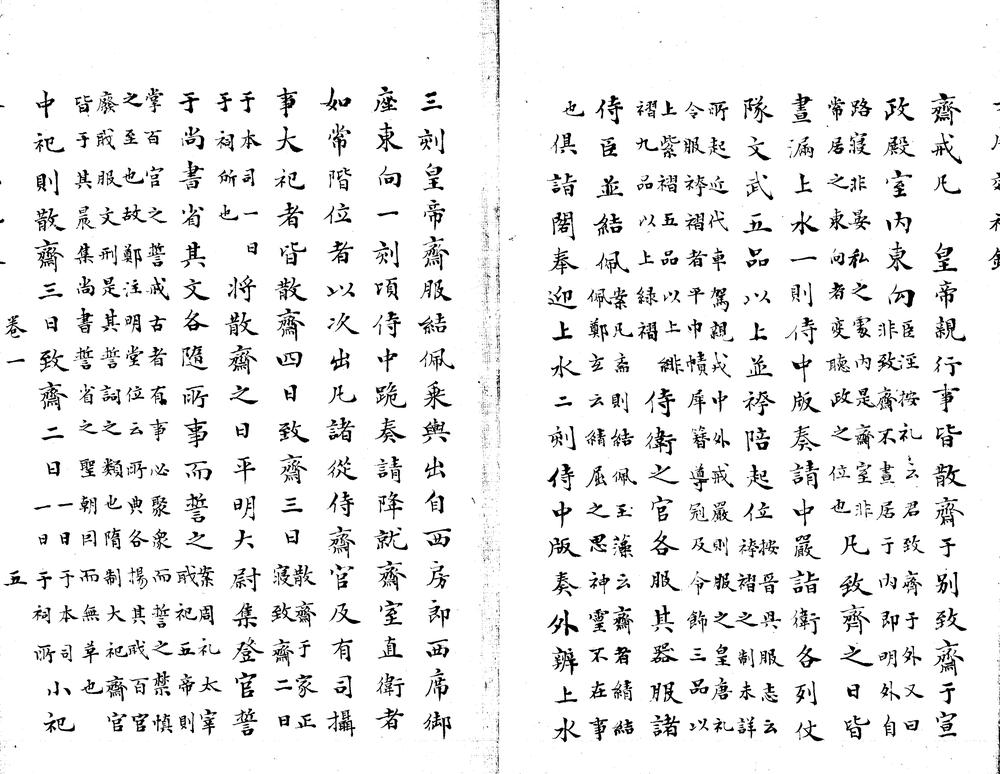 齋戒凡　皇帝親行事皆散齋于別致齋于宣
政殿室內東向臣涇按礼云君致齊于外又曰
非致齋不晝居于內即明外自
路寢非晏私之處內是齋室非
常居之東向者変聽政之位也凡致齊之日皆
晝漏上水一則侍中版奏請中嚴詣衛各列仗
隊文武五品以上並袴陪起位按晉具服志云
袴褶之制未詳
所起近代車駕親戎中外戒嚴則服之皇唐礼
令服袴褶者平巾幘犀簪導冠及令餙三品以
上紫褶五品以上緋
褶九品以上緑褶侍衛之官各服其器服諸
侍臣並結佩案凡斎則結佩玉藻云齋者綪結
佩鄭玄云綪屈之思神霊不在事
也俱詣閤奉迎上水二刻侍中版奏外辨上水
三刻皇帝齋服結佩乘輿出自西房即西席御
座東向一刻頃侍中跪奏請降就齋室直衛者
如常階位者以次出凡諸從侍齋官及有司攝
事大祀者皆散齋四日致齋三日散齋于家正
寢致齋二日
于本司一日
于祠所也將散齋之日平明大尉集登官誓
于尚書省其文各隨所事而誓之案周礼太宰
戒祀五帝則
掌百官之誓戒古者有事必聚衆而誓之禁慎
之至也故鄭注明堂位云所典各揚其戒百官
廢戝服文刑是其誓詞之類也隋制大祀齋官
皆于其晨集尚書誓省之聖朝因而無草也
中祀則散齋三日致齋二日一日于本司
一日于祠所小祀
卷一　五